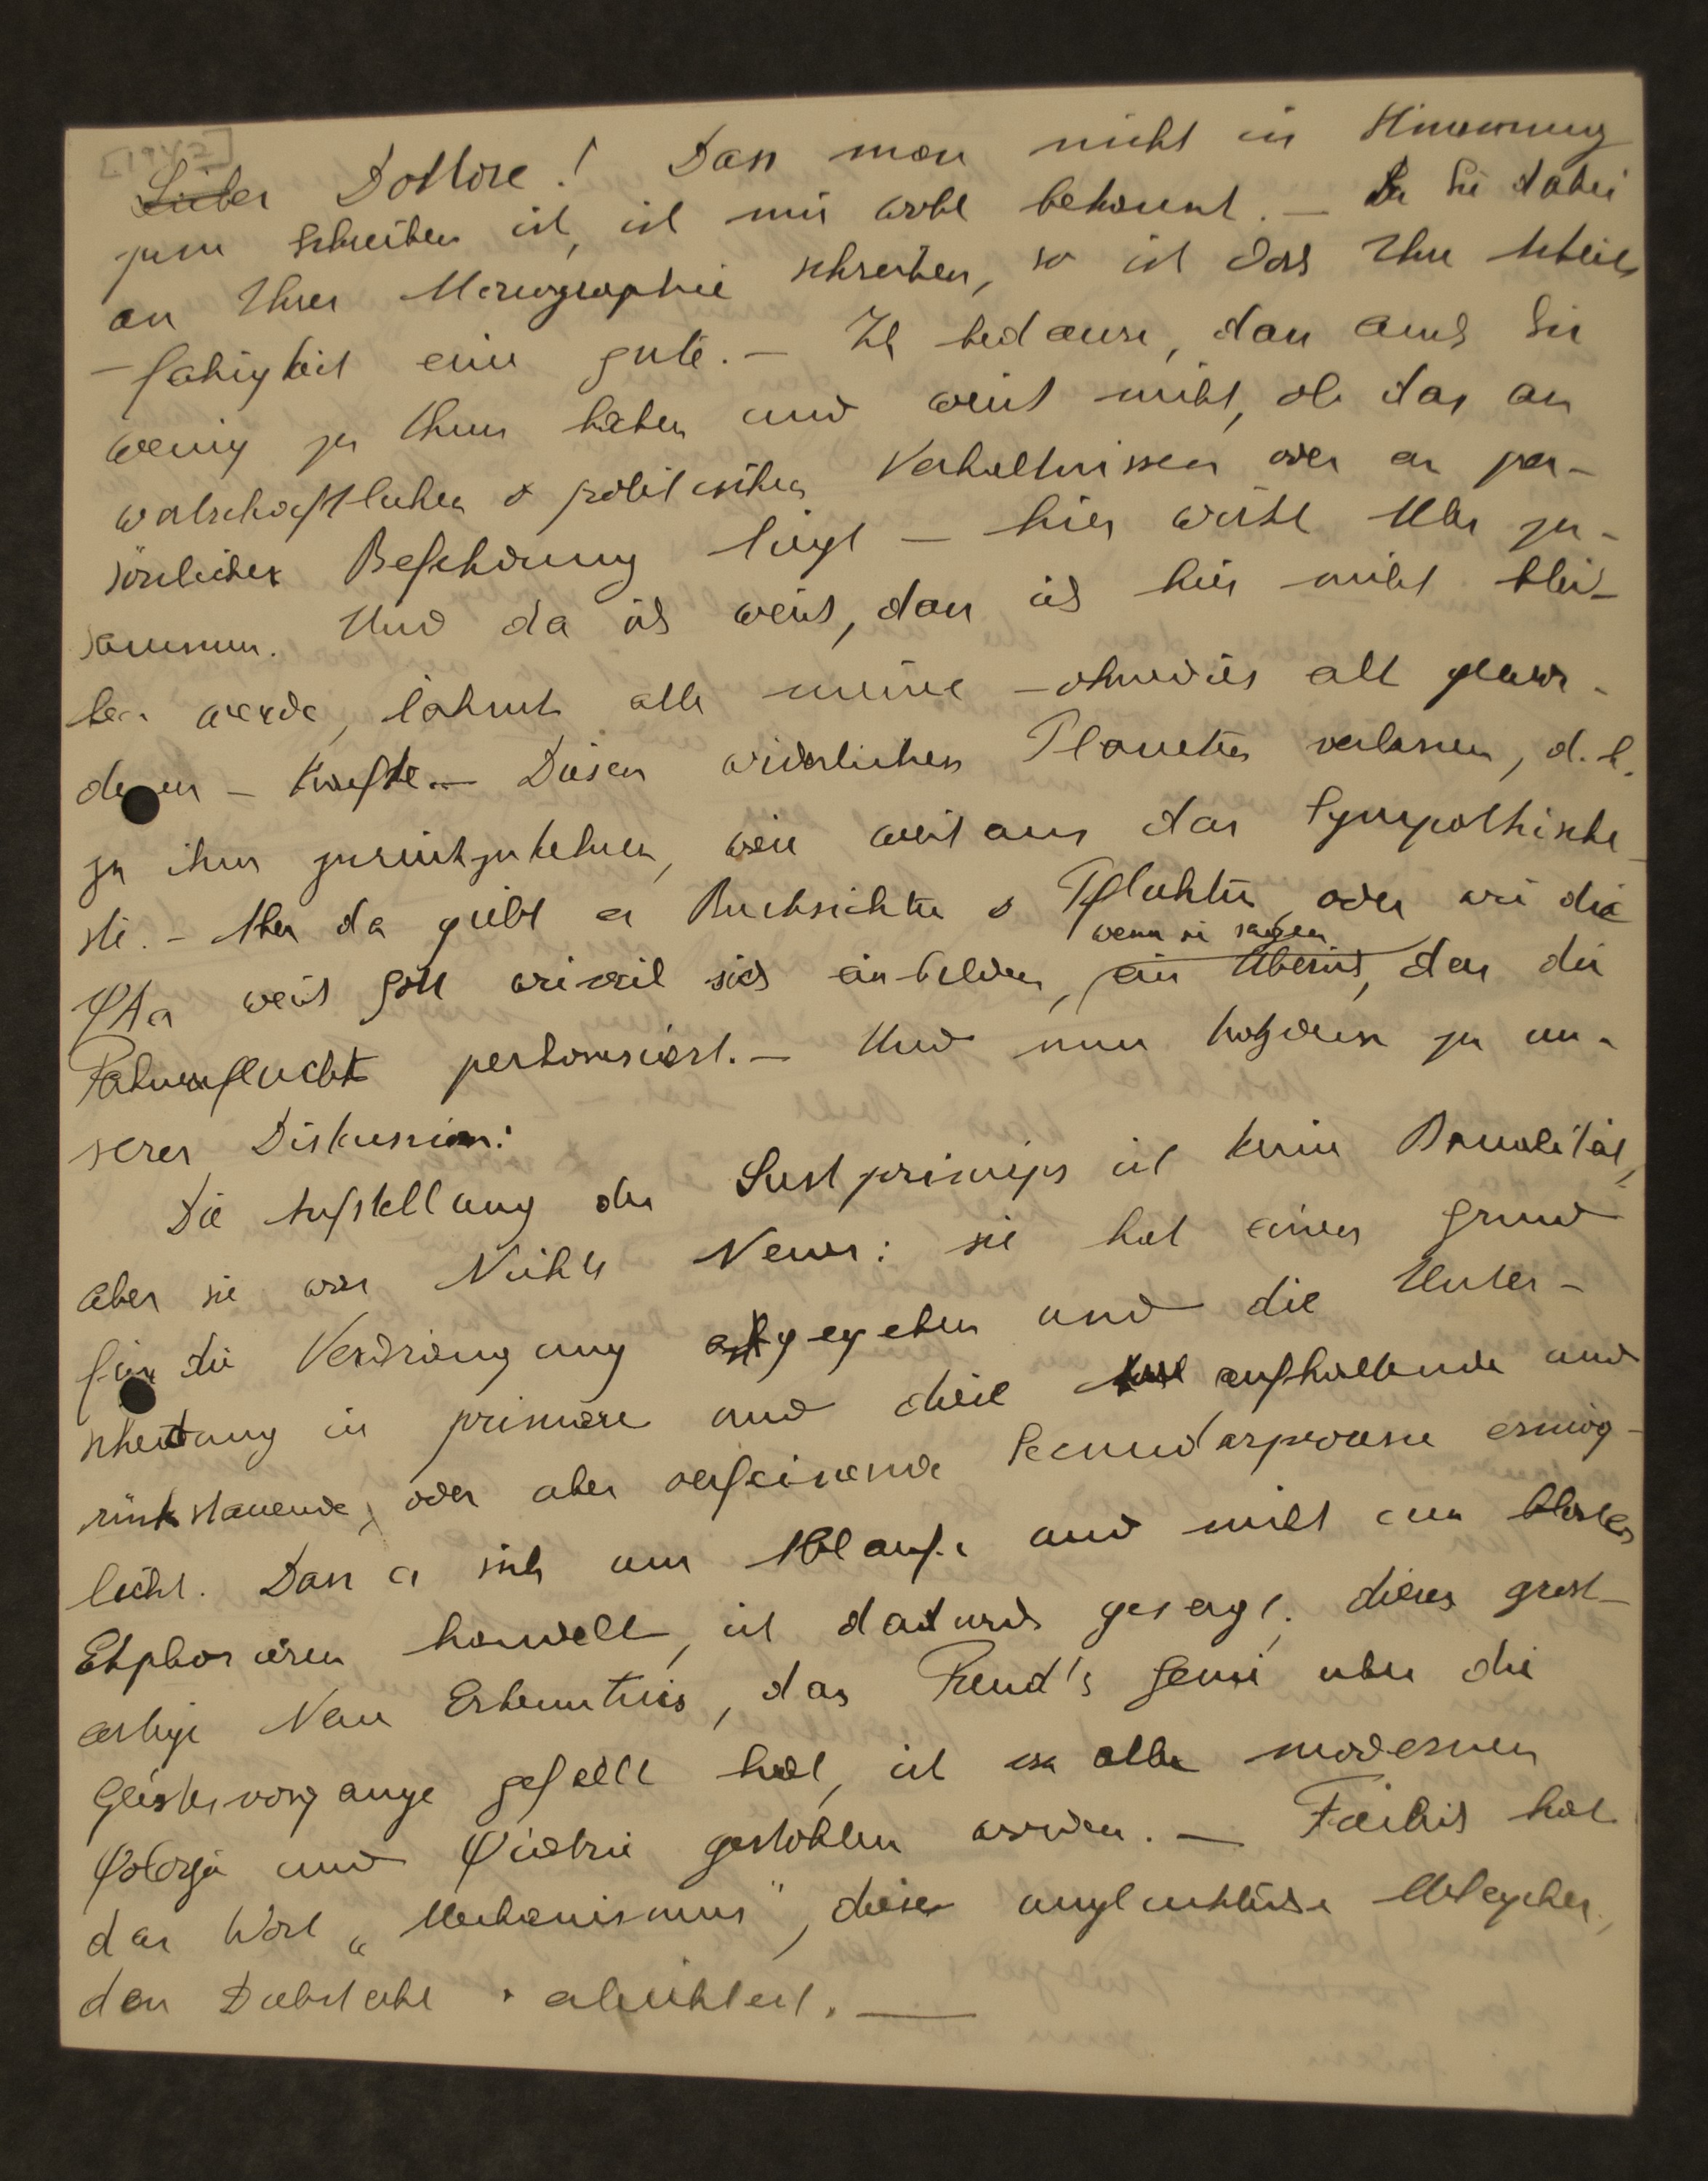 [1947]
Lieber Dottore! Dass man nicht in Stimmung
zum Schreiben ist, ist mir wohl bekannt. — Da Sie dabei
an Ihrer Monographie schreiben, so ist das Ihre Arbeits
-fähigkeit eine gute. — Ich bedaure, dass auch Sie
wenig zu thun haben und weiss nicht, ob das an
wirtschaftlichen & politischen Verhältnissen oder an per-
sönlicher Befehdung liegt — hier wirkt Alles zu-
sammen. Und da ich weiss, dass ich hier nicht blei-
ben werde, lähmt alle meine — ohnedies alt gewor-
denen — Kräfte. — Diesen widerlichen Planeten verlassen, d. h.
zu ihm zurückzukehren, wäre weitaus das Sympathische-
ste. — Aber da giebt es Rücksichten & Pflichten oder wie die
ΨA weiss Gott wieviel sich einbilden,
wenn sie sagen
ein Überich, das die
Fahnenflucht perhorresziert. — Und nun trotzdem zu un-
serer Diskussion:
Die Aufstellung des Lustprinzips ist keine Banalität,
aber sie war Nichts Neues: sie hat einen Grund
für die Verdrängung abgegeben und die Unter-
scheidung in primäre und diese aufhaltende und
rückstauende, oder aber verfeinernde Secundärprozesse ermög-
licht. Dass es sich um Abläufe und nicht um blosses
Ekphorieren handelt, ist dadurch gesagt; diese gross-
artige Neue Erkenntnis, das Freud's Genie über die
Geistesvorgänge gefällt hat, ist von alle modernen
Ψologie und Ψiatrie gestohlen worden. —  hat
das Wort „Mechanismus", dieser unglückliche
den Diebstahl erleichtert. —